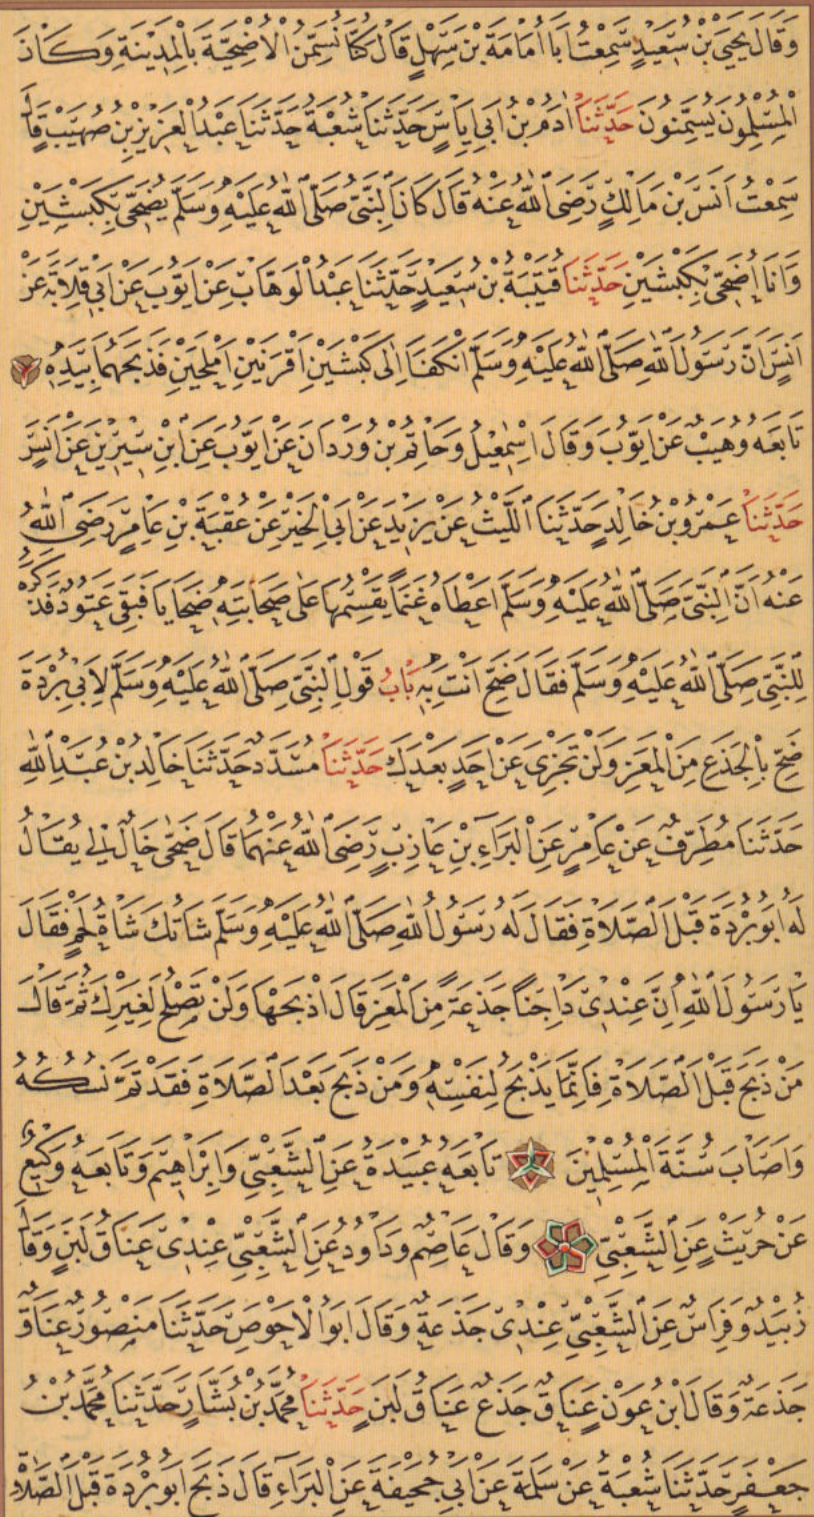 وَقَالَ يَحْيَى بْنُ سَعِيدٍ سَمِعْتُ أَبَا أُمَامَةَ بْنَ سَهْلٍ قَالَ كُنَّا نُسَمِّنُ الْأُضْحِيَّةَ بِالْمَدِينَةِ وَكَانَ
الْمُسْلِمُونَ يُسَمِّنُونَ حَدَّثَنَا آدَمُ بْنُ أَبِي إِيَاسٍ حَدَّثَنَا شُعْبَةُ حَدَّثَنَا عَبْدُ الْعَزِيزِ بْنُ صُهَيْبٍ قَالَ
سَمِعْتُ أَنَسَ بْنَ مَالِكٍ رَضِيَ اللّٰهُ عَنْهُ قَالَ كَانَ النَّبِيُّ صَلَّى اللّٰهُ عَلَيْهِ وَسَلَّمَ يُضَحِّي بِكَبْشَيْنِ
وَأَنَا أُضَحِّي بِكَبْشَيْنِ حَدَّثَنَا قُتَيْبَةُ بْنُ سَعِيدٍ حَدَّثَنَا عَبْدُ الْوَهَّابِ عَنْ أَيُّوبَ عَنْ أَبِي قِلَابَةَ عَنْ
أَنَسٍ أَنَّ رَسُولَ اللّٰهِ صَلَّى اللّٰهُ عَلَيْهِ وَسَلَّمَ انْكَفَأَ إِلَى كَبْشَيْنِ أَقْرَنَيْنِ أَمْلَحَيْنِ فَذَبَحَهُمَا بِيَدِهِ
تَابَعَهُ وُهَيْبٌ عَنْ أَيُّوبَ وَقَالَ إِسْمٰعِيلُ وَحَاتِمُ بْنُ وَرْدَانَ عَنْ أَيُّوبَ عَنِ ابْنِ سِيرِينَ عَنْ أَنَسٍ
حَدَّثَنَا عَمْرُو بْنُ خَالِدٍ حَدَّثَنَا اللَّيْثُ عَنْ يَزِيدَ عَنْ أَبِي الْخَيْرِ عَنْ عُقْبَةَ بْنِ عَامِرٍ رَضِيَ اللّٰهُ
عَنْهُ أَنَّ النَّبِيَّ صَلَّى اللّٰهُ عَلَيْهِ وَسَلَّمَ أَعْطَاهُ غَنَمًا يَقْسِمُهَا عَلَى صَحَابَتِهِ ضَحَايَا فَبَقِيَ عَتُودٌ فَذَكَرَهُ
لِلنَّبِيِّ صَلَّى اللّٰهُ عَلَيْهِ وَسَلَّمَ فَقَالَ ضَحِّ أَنْتَ بِهِ بَابُ قَوْلِ النَّبِيِّ صَلَّى اللّٰهُ عَلَيْهِ وَسَلَّمَ لِأَبِي بُرْدَةَ
ضَحِّ بِالْجَذَعِ مِنَ الْمَعَزِ وَلَنْ تَجْزِيَ عَنْ أَحَدٍ بَعْدَكَ حَدَّثَنَا مُسَدَّدٌ حَدَّثَنَا خَالِدُ بْنُ عَبْدِ اللّٰهِ
حَدَّثَنَا مُطَرِّفٌ عَنْ عَامِرٍ عَنِ الْبَرَاءِ بْنِ عَازِبٍ رَضِيَ اللّٰهُ عَنْهُمَا قَالَ ضَحَّى خَالٌ لِي يُقَالُ
لَهُ أَبُو بُرْدَةَ قَبْلَ الصَّلَاةِ فَقَالَ لَهُ رَسُولُ اللّٰهِ صَلَّى اللّٰهُ عَلَيْهِ وَسَلَّمَ شَاتُكَ شَاةُ لَحْمٍ فَقَالَ
يَا رَسُولَ اللّٰهِ إِنَّ عِنْدِي دَاجِنًا جَذَعَةً مِنَ الْمَعَزِ قَالَ اذْبَحْهَا وَلَنْ تَصْلُحَ لِغَيْرِكَ ثُمَّ قَالَ
مَنْ ذَبَحَ قَبْلَ الصَّلَاةِ فَإِنَّمَا يَذْبَحُ لِنَفْسِهِ وَمَنْ ذَبَحَ بَعْدَ الصَّلَاةِ فَقَدْ تَمَّ نُسُكُهُ
وَأَصَابَ سُنَّةَ الْمُسْلِمِينَ تَابَعَهُ عُبَيْدَةُ عَنِ الشَّعْبِيِّ وَإِبْرَاهِيمَ وَتَابَعَهُ وَكِيعٌ
عَنْ حُرَيْثٍ عَنِ الشَّعْبِيِّ وَقَالَ عَاصِمٌ وَدَاوُدُ عَنِ الشَّعْبِيِّ عِنْدِي عَنَاقُ لَبَنٍ وَقَالَ
زُبَيْدٌ وَفِرَاسٌ عَنِ الشَّعْبِيِّ عِنْدِي جَذَعَةٌ وَقَالَ أَبُو الْأَحْوَصِ حَدَّثَنَا مَنْصُورٌ عَنَاقٌ
جَذَعَةٌ وَقَالَ ابْنُ عَوْنٍ عَنَاقٌ جَذَعٌ عَنَاقُ لَبَنٍ حَدَّثَنَا مُحَمَّدُ بْنُ بَشَّارٍ حَدَّثَنَا مُحَمَّدُ بْنُ
جَعْفَرٍ حَدَّثَنَا شُعْبَةُ عَنْ سَلَمَةَ عَنْ أَبِي جُحَيْفَةَ عَنِ الْبَرَاءِ قَالَ ذَبَحَ أَبُو بُرْدَةَ قَبْلَ الصَّلَاةِ